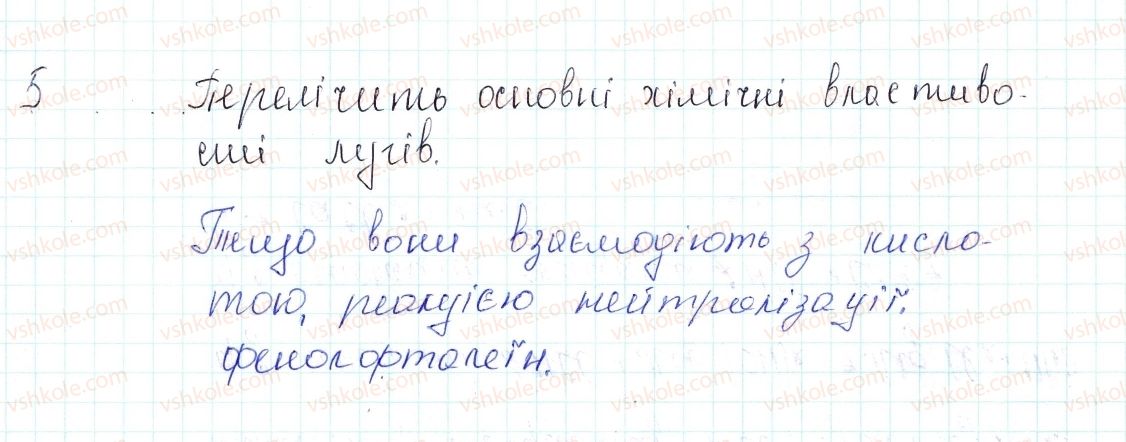 5 Перелічить основні хімічні властиво-
сті лугів.
Тищо вони взаємодіють з кисло-
тою, реакцією нейтралізації.
фенолфталеїн.
vshkole.com